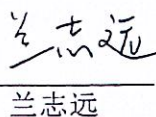 兰志远
兰志远